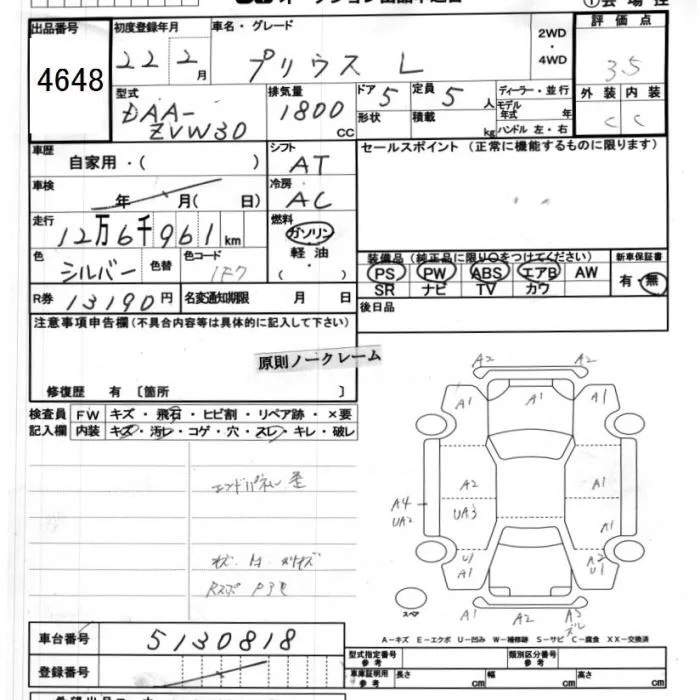 出品番号 初度登録年月 車名・グレード 2WD ・ 4WD 評価点
4648 22 2月 プリウス L 35
型式 排気量 ドア 定員 ディーラー・並行 外装 内装
DAA-ZVW30 1800cc 5 5人 モデル年式 年 C C
形状 積載 kg ハンドル 左・右
車歴 シフト セールスポイント (正常に機能するものに限ります)
自家用・( ) AT
車検 冷房
年 月( 日) AC
走行 燃料
12万6千961km ガソリン
色 色替 色コード 軽油 装備品 (純正品に限り○をつけてください) 新車保証書
シルバー 1F7 ( ) PS PW ABS エアB AW 有・無
SR ナビ TV カワ
R券 13190円 名変通知期限 月 日 後日品
注意事項申告欄(不具合内容等は具体的に記入して下さい)
原則ノークレーム
修復歴 有 〔箇所 〕
検査員 FW キズ・飛石・ヒビ割・リペア跡・×要
記入欄 内装 キズ・汚レ・コゲ・穴・スレ・キレ・破レ
A2 A2
A1 A1 A1
エンドパネル 歪
A2 A1
A4 UA2 UA3 A1
U1 A1 A2 U1
スペア
A1 A2 A3
A-キズ E-エクボ U-凹み W-補修跡 S-サビ C-腐食 XX-交換済
車台番号 5130818
型式指定番号 参考 類別区分番号 参考
登録番号
車庫証明用 参考 長さ cm 幅 cm 高さ cm